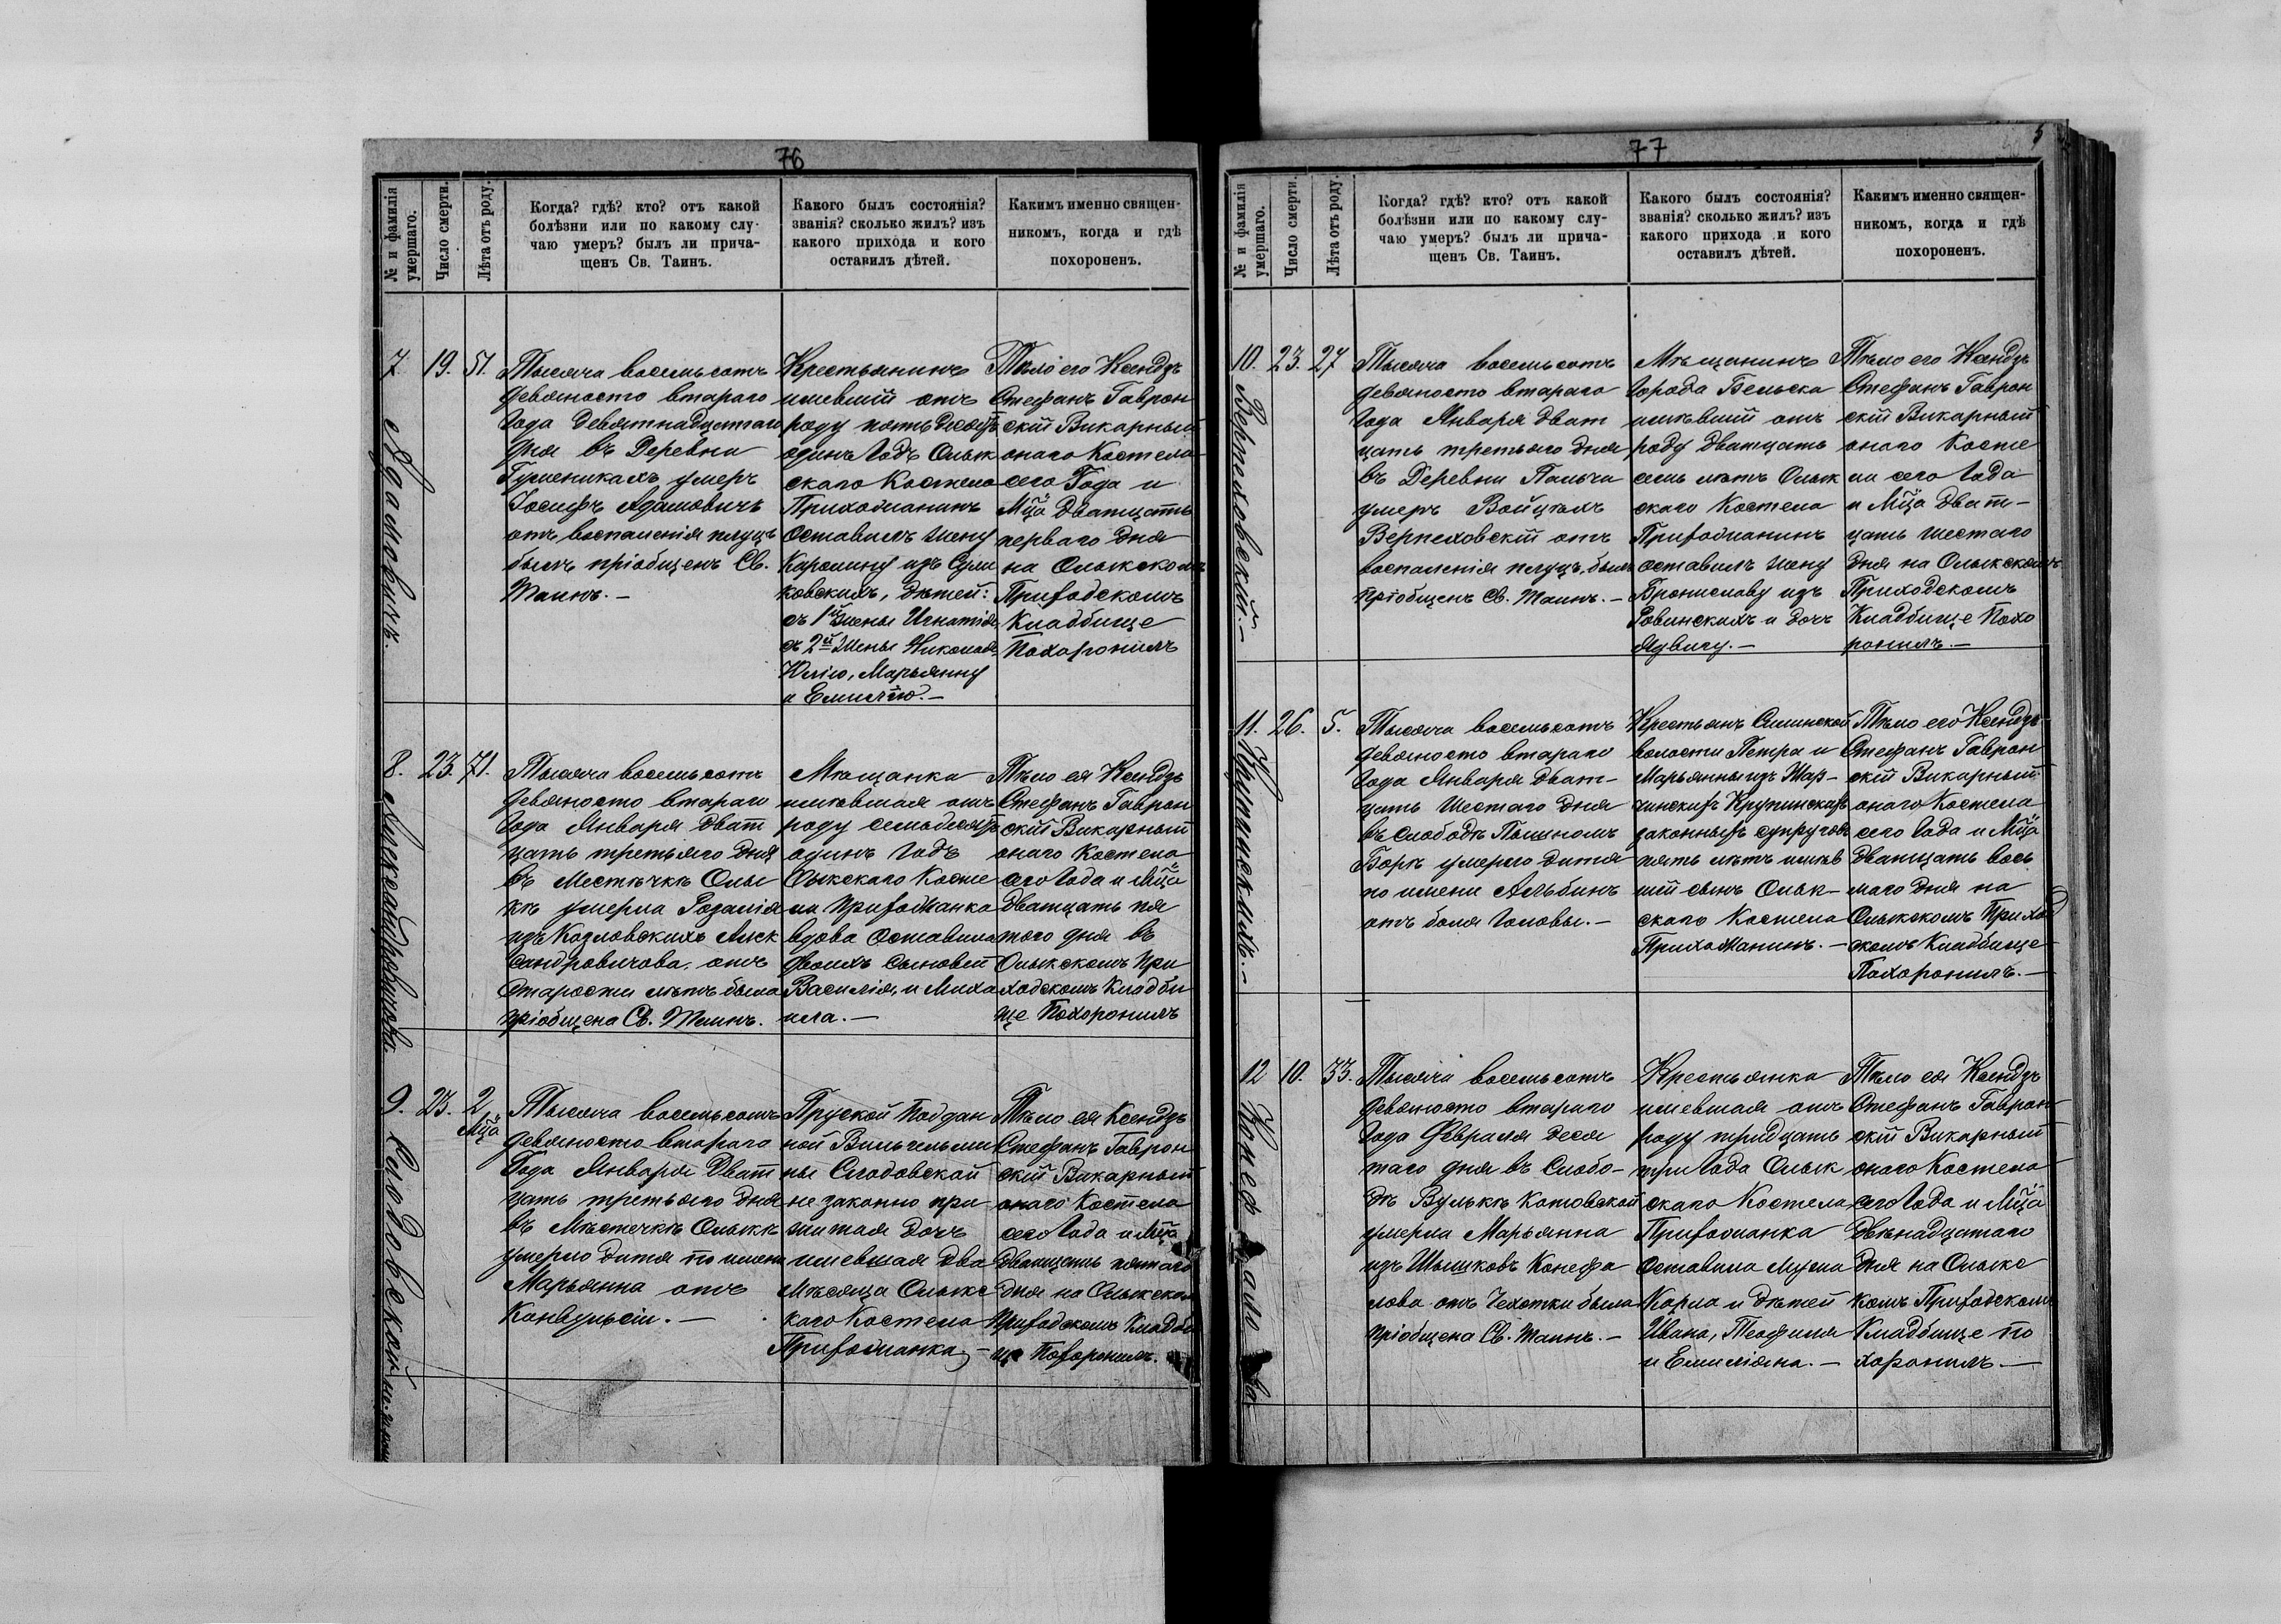 76
№ и фамилія умершаго.
Число смерти.
Лѣта отъ роду.
Когда? гдѣ? кто? отъ какой
болѣзни или по какому слу-
чаю умеръ? былъ ли прича-
щенъ Св. Таинъ.
Какого былъ состоянія?
званія? сколько жилъ? изъ
какого прихода и кого
оставилъ дѣтей.
Какимъ именно священ-
никомъ, когда и гдѣ
похороненъ.
7
Адамовичъ.
19.
51.
Тысяча восемьсотъ
девяносто втараго
Года Девятнадцатаго
дня въ Деревни
Гуменикахъ умеръ
Іосифъ Адамовичъ
отъ воспаленія плуцъ
былъ пріобщенъ Св.
Таинъ. –
Крестьянинъ
имевшій отъ
роду пятьдесятъ
одинъ Годъ Олык
скаго Костела
Прихожанинъ
Оставилъ жену
Каролину изъ Сули
ковскихъ, дѣтей:
съ 1й жены Игнатія,
съ 2й жены Николая,
Юлію, Марьянну
и Емилію. –
Тѣло его Ксендзъ
Стефанъ Гаврон
скій Викарный
онаго Костела
сего Года и
Мца Дватцать
перваго дня
на Олыкскомъ
Приходскомъ
Кладбище
Похоронилъ
8.
Александровичова
23.
71.
Тысяча восемьсотъ
девяносто втараго
Года Января Дват
цать третьяго дня
въ Местечкѣ Олы
кѣ умерла Розалія
изъ Козловскихъ Алек
сандровичова. отъ
Старости лѣтъ была
пріобщена Св. Таинъ.
Мѣщанка
имевшая отъ
роду семьдесятъ
одинъ Годъ
Олыкскаго Косте
ла Прихожанка
вдова Оставила
двоихъ Сыновей
Василія, и Миха
ила. –
Тѣло ея Ксендзъ
Стефанъ Гаврон
скій Викарный
онаго Костела
сего Года и Мца
Дватцать пя
того дня въ
Олыкскомъ При
ходскомъ Кладби
ще Похоронилъ
9.
23.
2
Мца
Тысяча восемьсотъ
девяносто втараго
Года Января Дват
цать третьяго дня
въ Мѣстечкѣ Олыкѣ
умерло дитя по имени
Марьянна отъ
Конвульсіи. –
Пруской Поддан
ной Вильгельми
ны Слодовской
не законно при
житая дочь
имевшая два
Мѣсяца Олыкс
каго Костела
Прихожанка –
Тѣло ея Ксендзъ
Стефанъ Гаврон
скій Викарный
онаго Костела
сего Года и Мца
Дватцать пятаго
дня на Олыкском
Приходскомъ Кладби
ще Похоронилъ.
77
5
№ и фамилія умершаго.
Число смерти.
Лѣта отъ роду.
Когда? гдѣ? кто? отъ какой
болѣзни или по какому слу-
чаю умеръ? былъ ли прича-
щенъ Св. Таинъ.
Какого былъ состоянія?
званія? сколько жилъ? изъ
какого прихода и кого
оставилъ дѣтей.
Какимъ именно священ-
никомъ, когда и гдѣ
похороненъ.
10.
Верпеховскій. –
23.
27
Тысяча восемьсотъ
девяносто втараго
Года Января Дват
цать третьяго дня
въ Деревни Пальчи
умеръ Войцѣхъ
Верпеховскій отъ
воспаленія плуцъ, былъ
пріобщенъ Св. Таинъ. –
Мѣщанинъ
Города Бельска
имѣвшій отъ
роду Дватцать
семь лѣтъ Олык
скаго Костела
Прихожанинъ
оставилъ жену
Брониславу изъ
Ровинскихъ и дочь
Ядвигу. –
Тѣло его Ксендзъ
Стефанъ Гаврон
скій Викарный
онаго Косте
ла сего Года
и Мца Дват-
цать шестаго
дня на Олыкскомъ
Приходскомъ
Кладбище Похо
ронилъ. –
11.
Крупинскихъ. –
26.
5.
Тысяча восемьсотъ
девяносто втараго
Года Января Дват-
цать Шестаго дня
въ Слободѣ Пышномъ
Боркѣ умерло дитя
по имени Альбинъ
отъ боли Головы. –
Крестьянъ Силинской
волости Петра и
Марьянны изъ Жар-
чинскихъ Крупинскихъ
законныхъ супруговъ
пять лѣтъ имѣв
шій сынъ Олык-
скаго Костела
Прихожанинъ. –
Тѣло его Ксендзъ
Стефанъ Гаврон
скій Викарный
онаго Костела
сего Года и Мца
Дватцать вось
маго дня на
Олыкскомъ Приход
скомъ Кладбище
Похоронилъ. –
12
10.
33.
Тысяча восемьсотъ
девяносто втараго
Года Февраля деся
таго дня въ Слобо-
дѣ Вулькѣ Котовской
умерла Марьянна
изъ Шышковъ Конефа
лова отъ Чехотки была
пріобщена Св. Таинъ. –
Крестьянка
имевшая отъ
роду тридцать
три Года Олык
скаго Костела
Прихожанка
Оставила Мужа
Карла и дѣтей
Ивана, Теофиля
и Емиліяна. –
Тѣло ея Ксендзъ
Стефанъ Гаврон
скій Викарный
онаго Костела
сего Года и Мца
Двѣнадцатаго
дня на Олыкс
комъ Приходскомъ
Кладбище по
хоронилъ. –